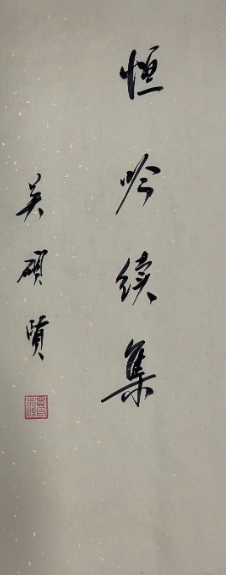 恒吟续集
吴硕贤